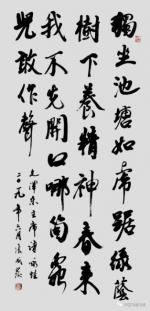 獨坐池塘如虎踞綠蔭
樹下養精神春來
我不先開口哪箇蟲
兒敢作聲
毛澤東主席詩詠蛙
二〇一九年六月